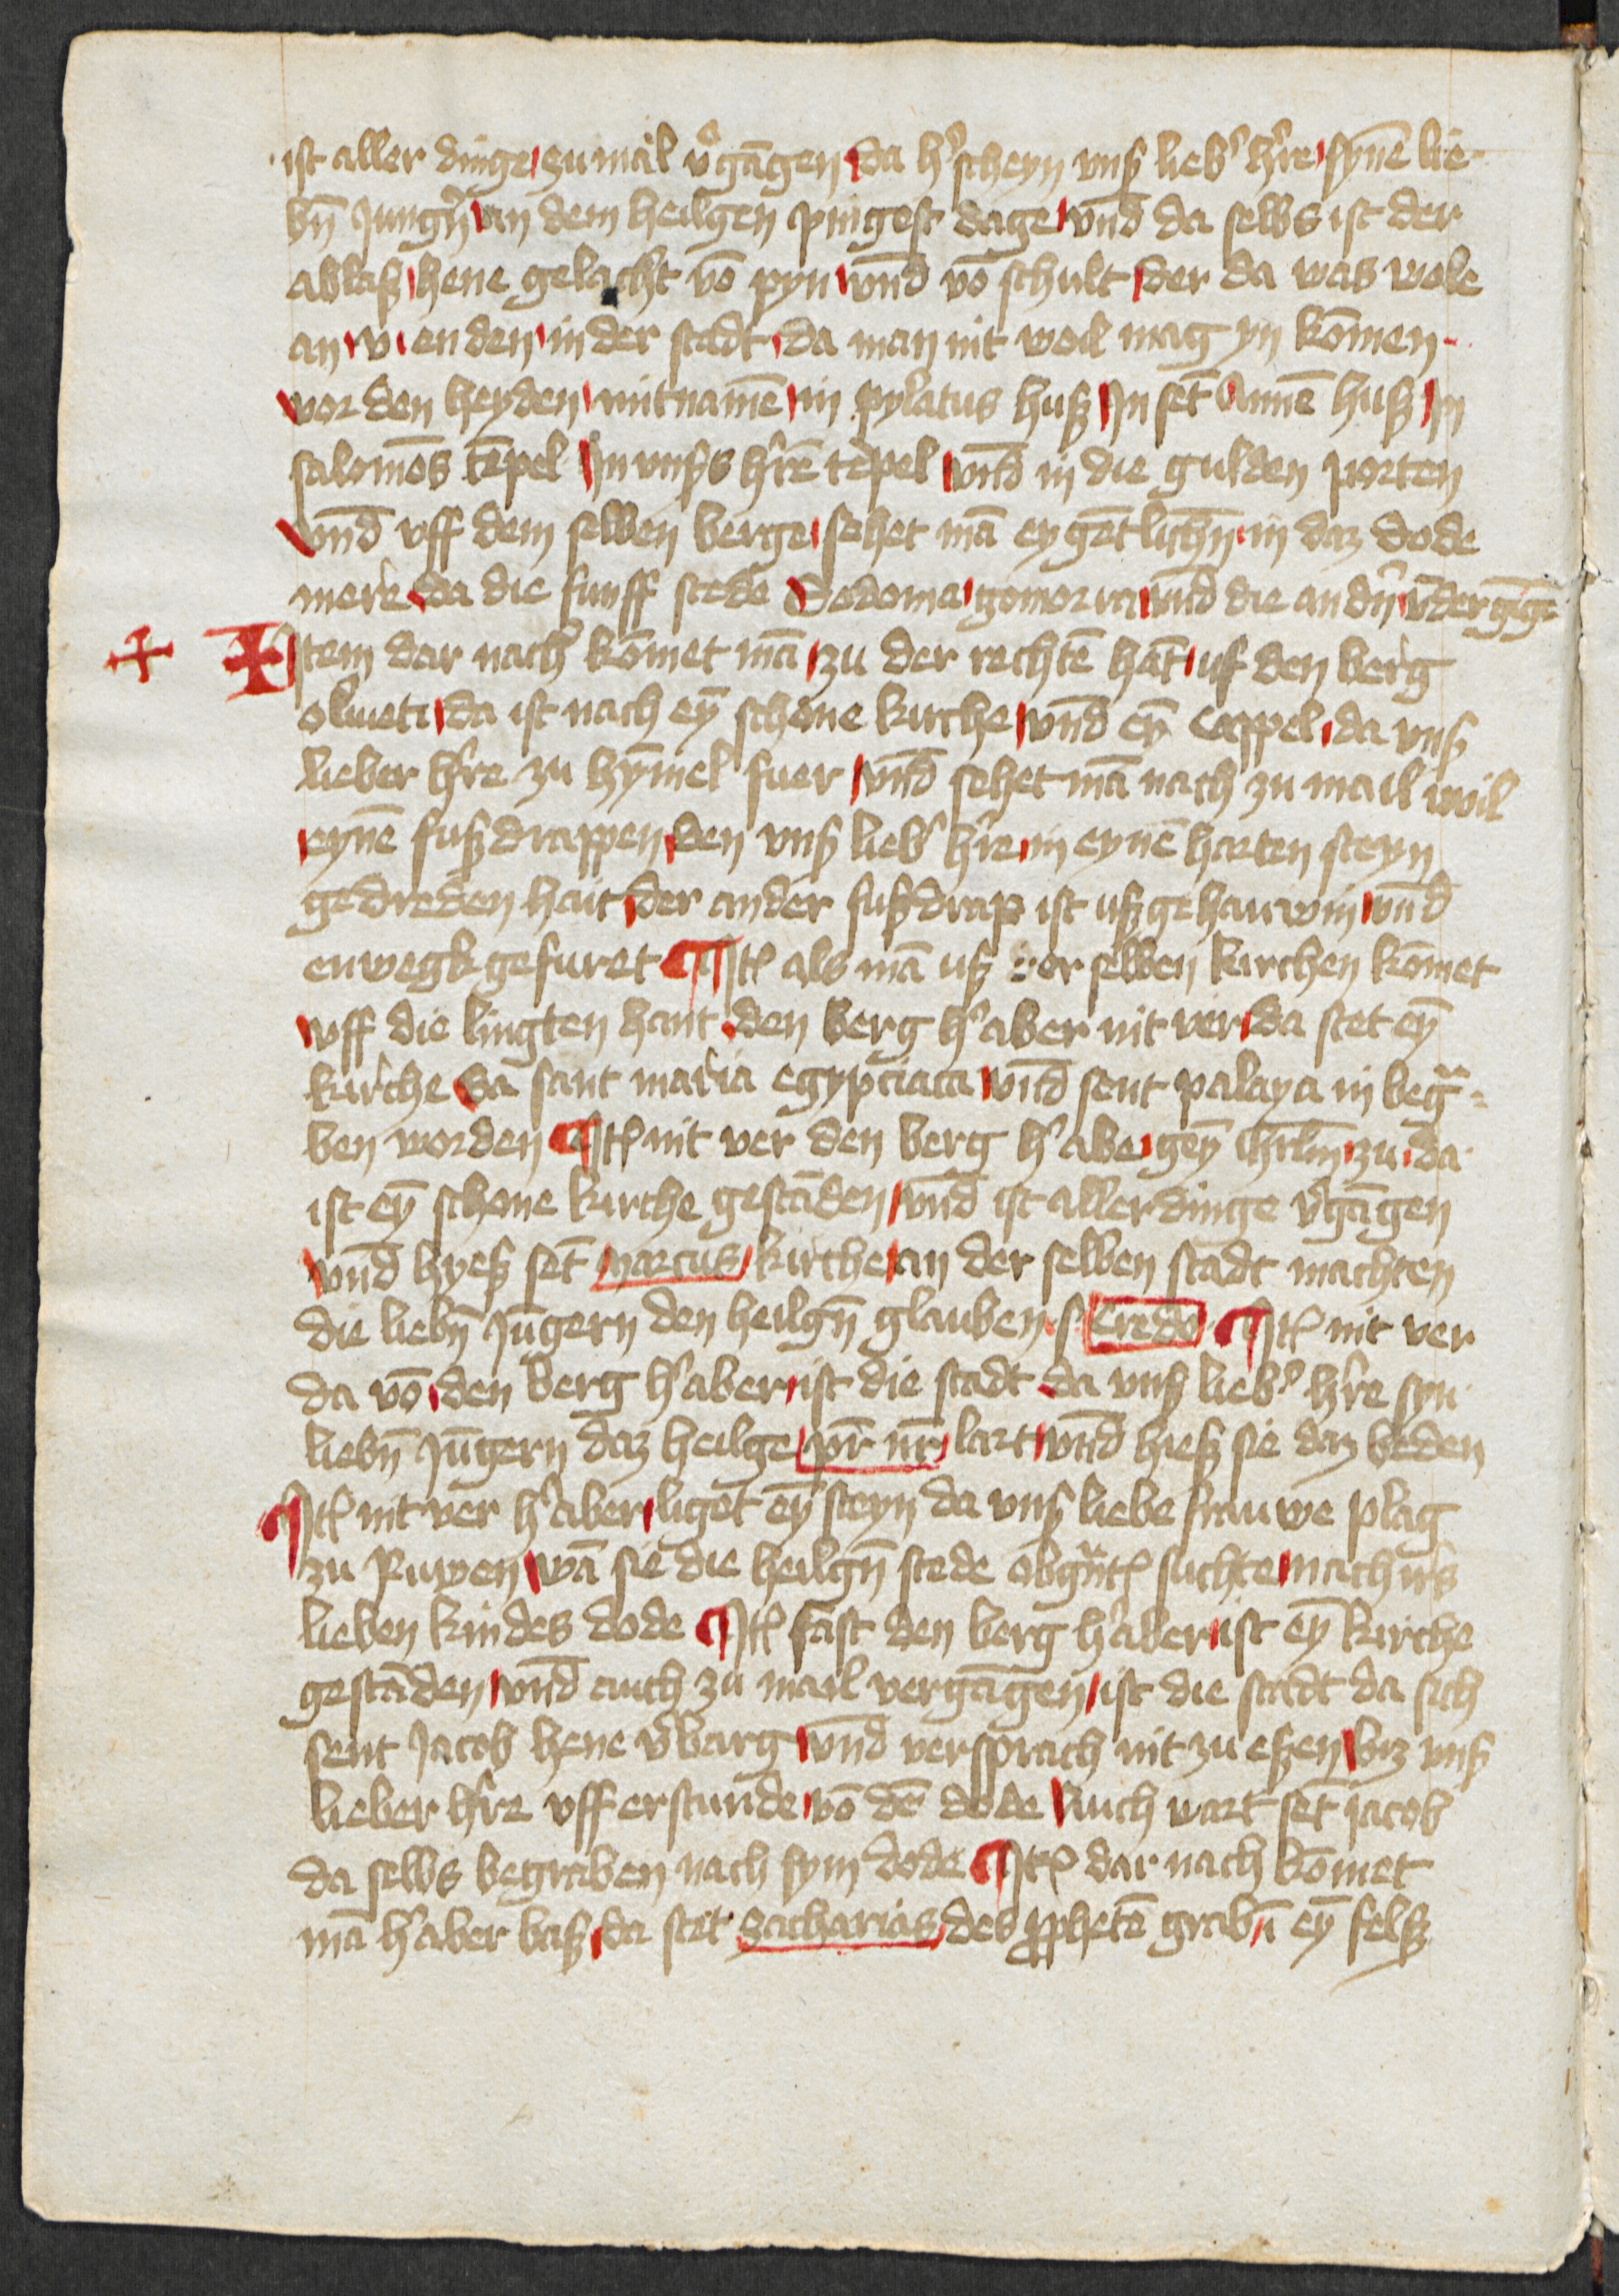 ist aller dinge zu mal v᷑gāgen da h᷑scheyn vnß lieb᷑ h᷑re synē lie-
bn̄ Jung᷑n an dem heilgen pingest dage vnd̄ da selbs ist der
ablaß hene gelacht vō pyn vnd̄ vō schult der da was wole
an v enden in der stadt da man nit woil mag yn kōmen
vor den heyden mit namē in pylatus huß In sēt Annē huß In
salomōs tēpel In vnßs h᷑rē tēpel vnd̄ in die gulden porten
vnd̄ vff dem selben berge sehet mā eygētlichn̄ in daz dode
mere da die funff stede Sodoma gomorra vnd̄ die andn̄ v̄dergāgē
Item dar nach kōmet mā zu der rechtē hāt uf den berg
oliueti da ist nach eyn̄ schone kirche vnd̄ eyn̄ cappel da vnß
lieber h᷑re zu hym̄el fuer vnd̄ sehet mā nach zu mail wil
eynē fußdrappen den vnß lieb᷑ h᷑re in eynē harten steyn
gedreden hait der ander fußdrap ist ußgehauwin vnd̄
enwegk gefuret Itꝫ als mā uß der selben kirchen kōmet
vff die lingten hant den berg h᷑aber nit ver da stet eyn̄
kirche da sant maria egypciaca vnd̄ sent palaya in begᷓ-
ben worden Itꝫ nit ver den berg h᷑abe geyn̄ ih᷑rlm̄ zu da
ist eyn̄ schone kirche gestāden vnd̄ ist aller dinge v᷑gāgen
vnd̄ hyeß sēt marcus kirche an der selben stadt machten
die liebn̄ Jūgern den heilgn̄ glauben s Credo Itꝫ nit ver
da vō den berg h᷑aber ist die stadt da vnß lieb᷑ h᷑re syn
liebn̄ Jūgern daz heilge pr̄ nr̄ lart vnd̄ hieß sie daz beden
Itꝫ nit ver h᷑aber liget eyn̄ steyn da vnß liebe frauwe plag
zu Ruwen wā sie die heilgn̄ stede obgn̄tꝫ suchte nach irs
lieben kindes dode Itꝫ fast den berg h᷑aber ist eyn̄ kirche
gestāden vnd̄ auch zu mail vergāgen ist die stadt da sich
sent Jacob hene v᷑barg vnd̄ versprach nit zu eßen biz vnß
lieber h᷑re vff erstunde vō dē dode Auch wart sēt jacob
da selbs begraben nach sym dode Itꝫ dar nach kōmet
mā h᷑aber baß da stet zacharias des ꝓphetē grab ī eyn̄ felß